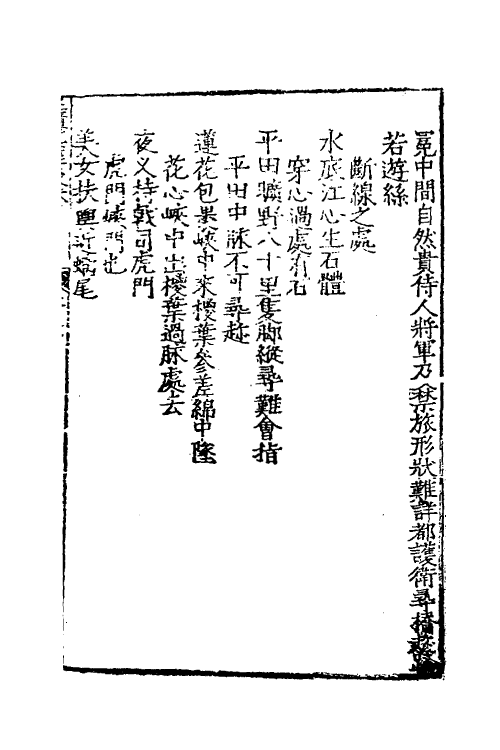 冕中間自然貴待人將軍乃禁旅形狀難詳都護衛尋橋
若遊絲
斷線之處
水底江心生石體
穿心渦處有石
平田曠野八十里隻脚縱尋難會指
平田中脉不可尋趂
蓮花包褁峽中來椶葉參差綿中墜
花心峽中出椶葉過脉處去
夜义持戟司虎門
虎門峽門也
美女扶輿近蝎尾